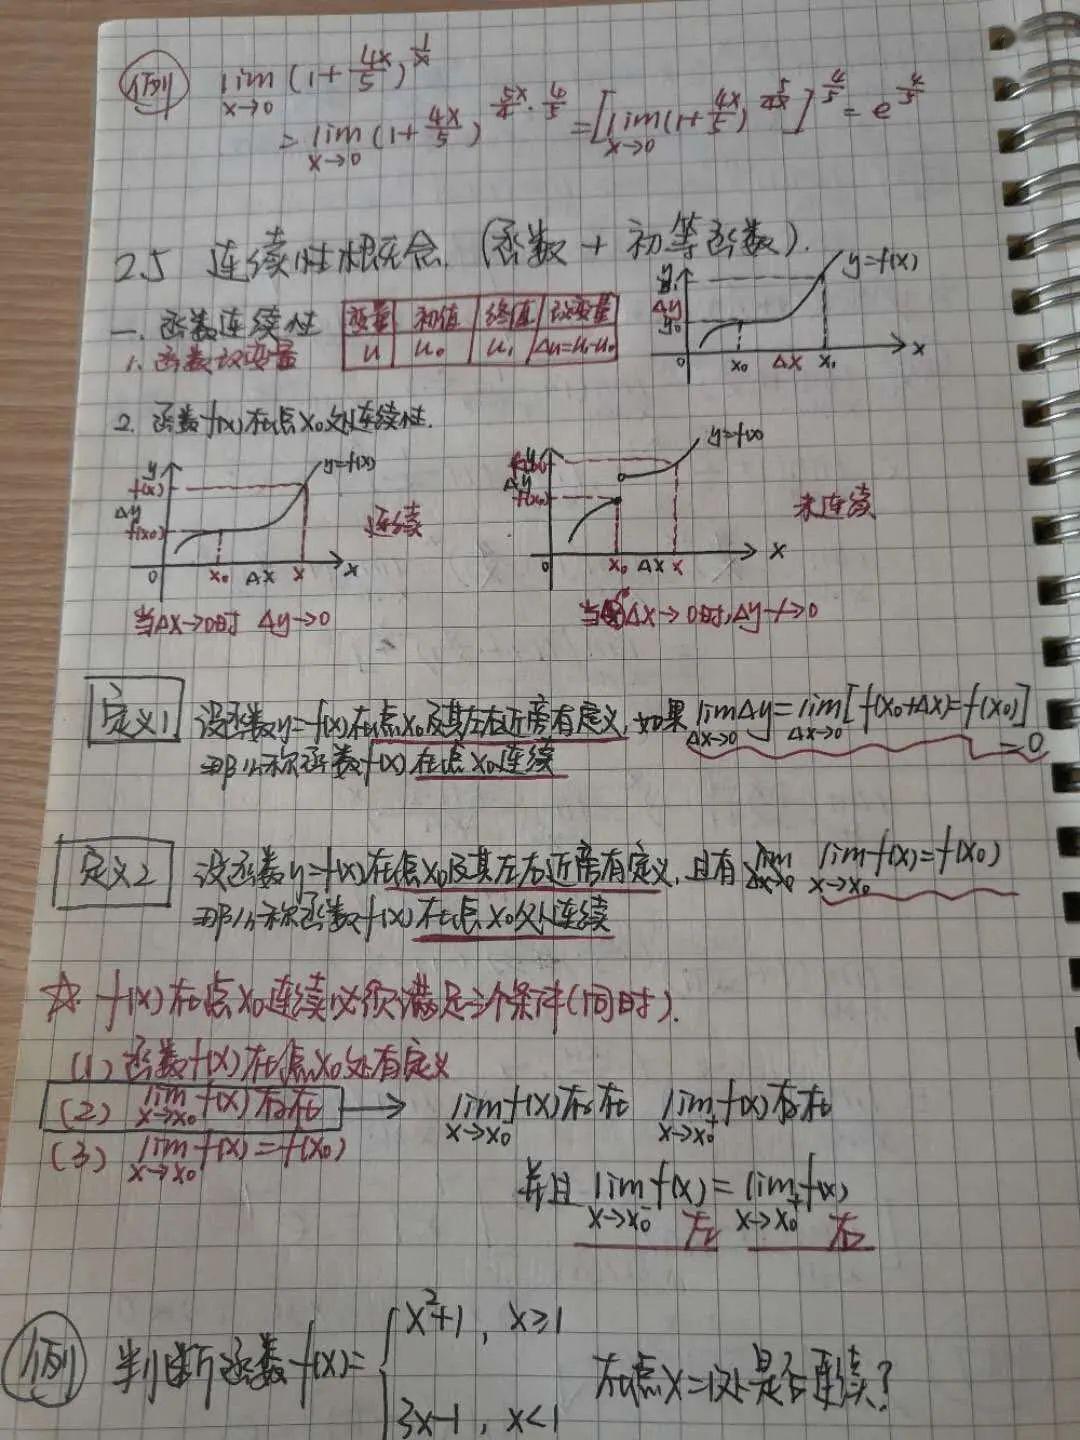 例 lim x→0 (1+4x/5)^(1/x)
= lim x→0 (1+4x/5)^(5x/4·4/5) = [lim x→0 (1+4x/5)^(5/4x)]^(4/5) = e^(4/5)
2.5 连续性概念.(函数+初等函数).
一.函数连续性
1.函数改变量
变量 初值 终值 改变量
u u₀ u₁ Δu=u₁-u₀
y=f(x)
y₁
Δy
y₀
0 x₀ Δx x₁ x
2.函数f(x)在点x₀处连续性.
y y=f(x)
f(x)
Δy
f(x₀)
0 x₀ Δx x x
连续
当Δx→0时 Δy→0
y=f(x)
Δy
f(x₀)
0 x₀ Δx x x
未连续
当Δx→0时,Δy↛0
定义1 设函数y=f(x)在点x₀及其左右近旁有定义,如果 lim Δx→0 Δy = lim Δx→0 [f(x₀+Δx)=f(x₀)] =0
那么称函数f(x)在点x₀连续
定义2 设函数y=f(x)在点x₀及其左右近旁有定义,且有 lim x→x₀ f(x)=f(x₀)
那么称函数f(x)在点x₀处连续
☆.f(x)在点x₀连续必须满足三个条件(同时).
(1)函数f(x)在点x₀处有定义
(2) lim x→x₀ f(x)存在 → lim x→x₀⁻ f(x)存在 lim x→x₀⁺ f(x)存在
(3) lim x→x₀ f(x)=f(x₀)
并且 lim x→x₀⁻ f(x) = lim x→x₀⁺ f(x)
左 右
例 判断函数f(x)= { x²+1, x≥1
3x-1, x<1
在点x=1处是否连续?